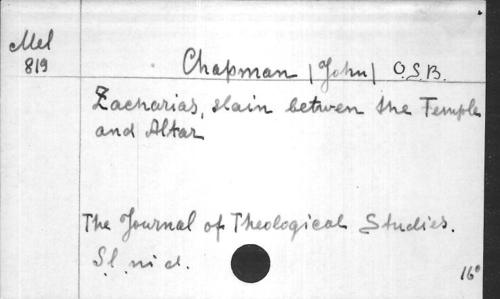 Mel
819
Chapman (John) O.S.B.
Zacharias, slain between the Temple
and Altar
The Journal of Theological Studies.
S. l. ni d.
16°